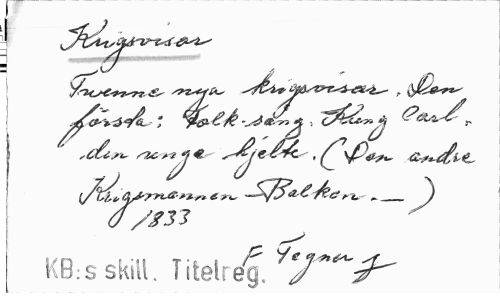 Krigsvisor
Twenne nya krigsvisor. Den
första: Folk-sång. Kung Carl,
den unge hjelte. (Den andre
Krigsmannen Balken. — )
1833
F Tegner
KB:s skill. Titelreg.